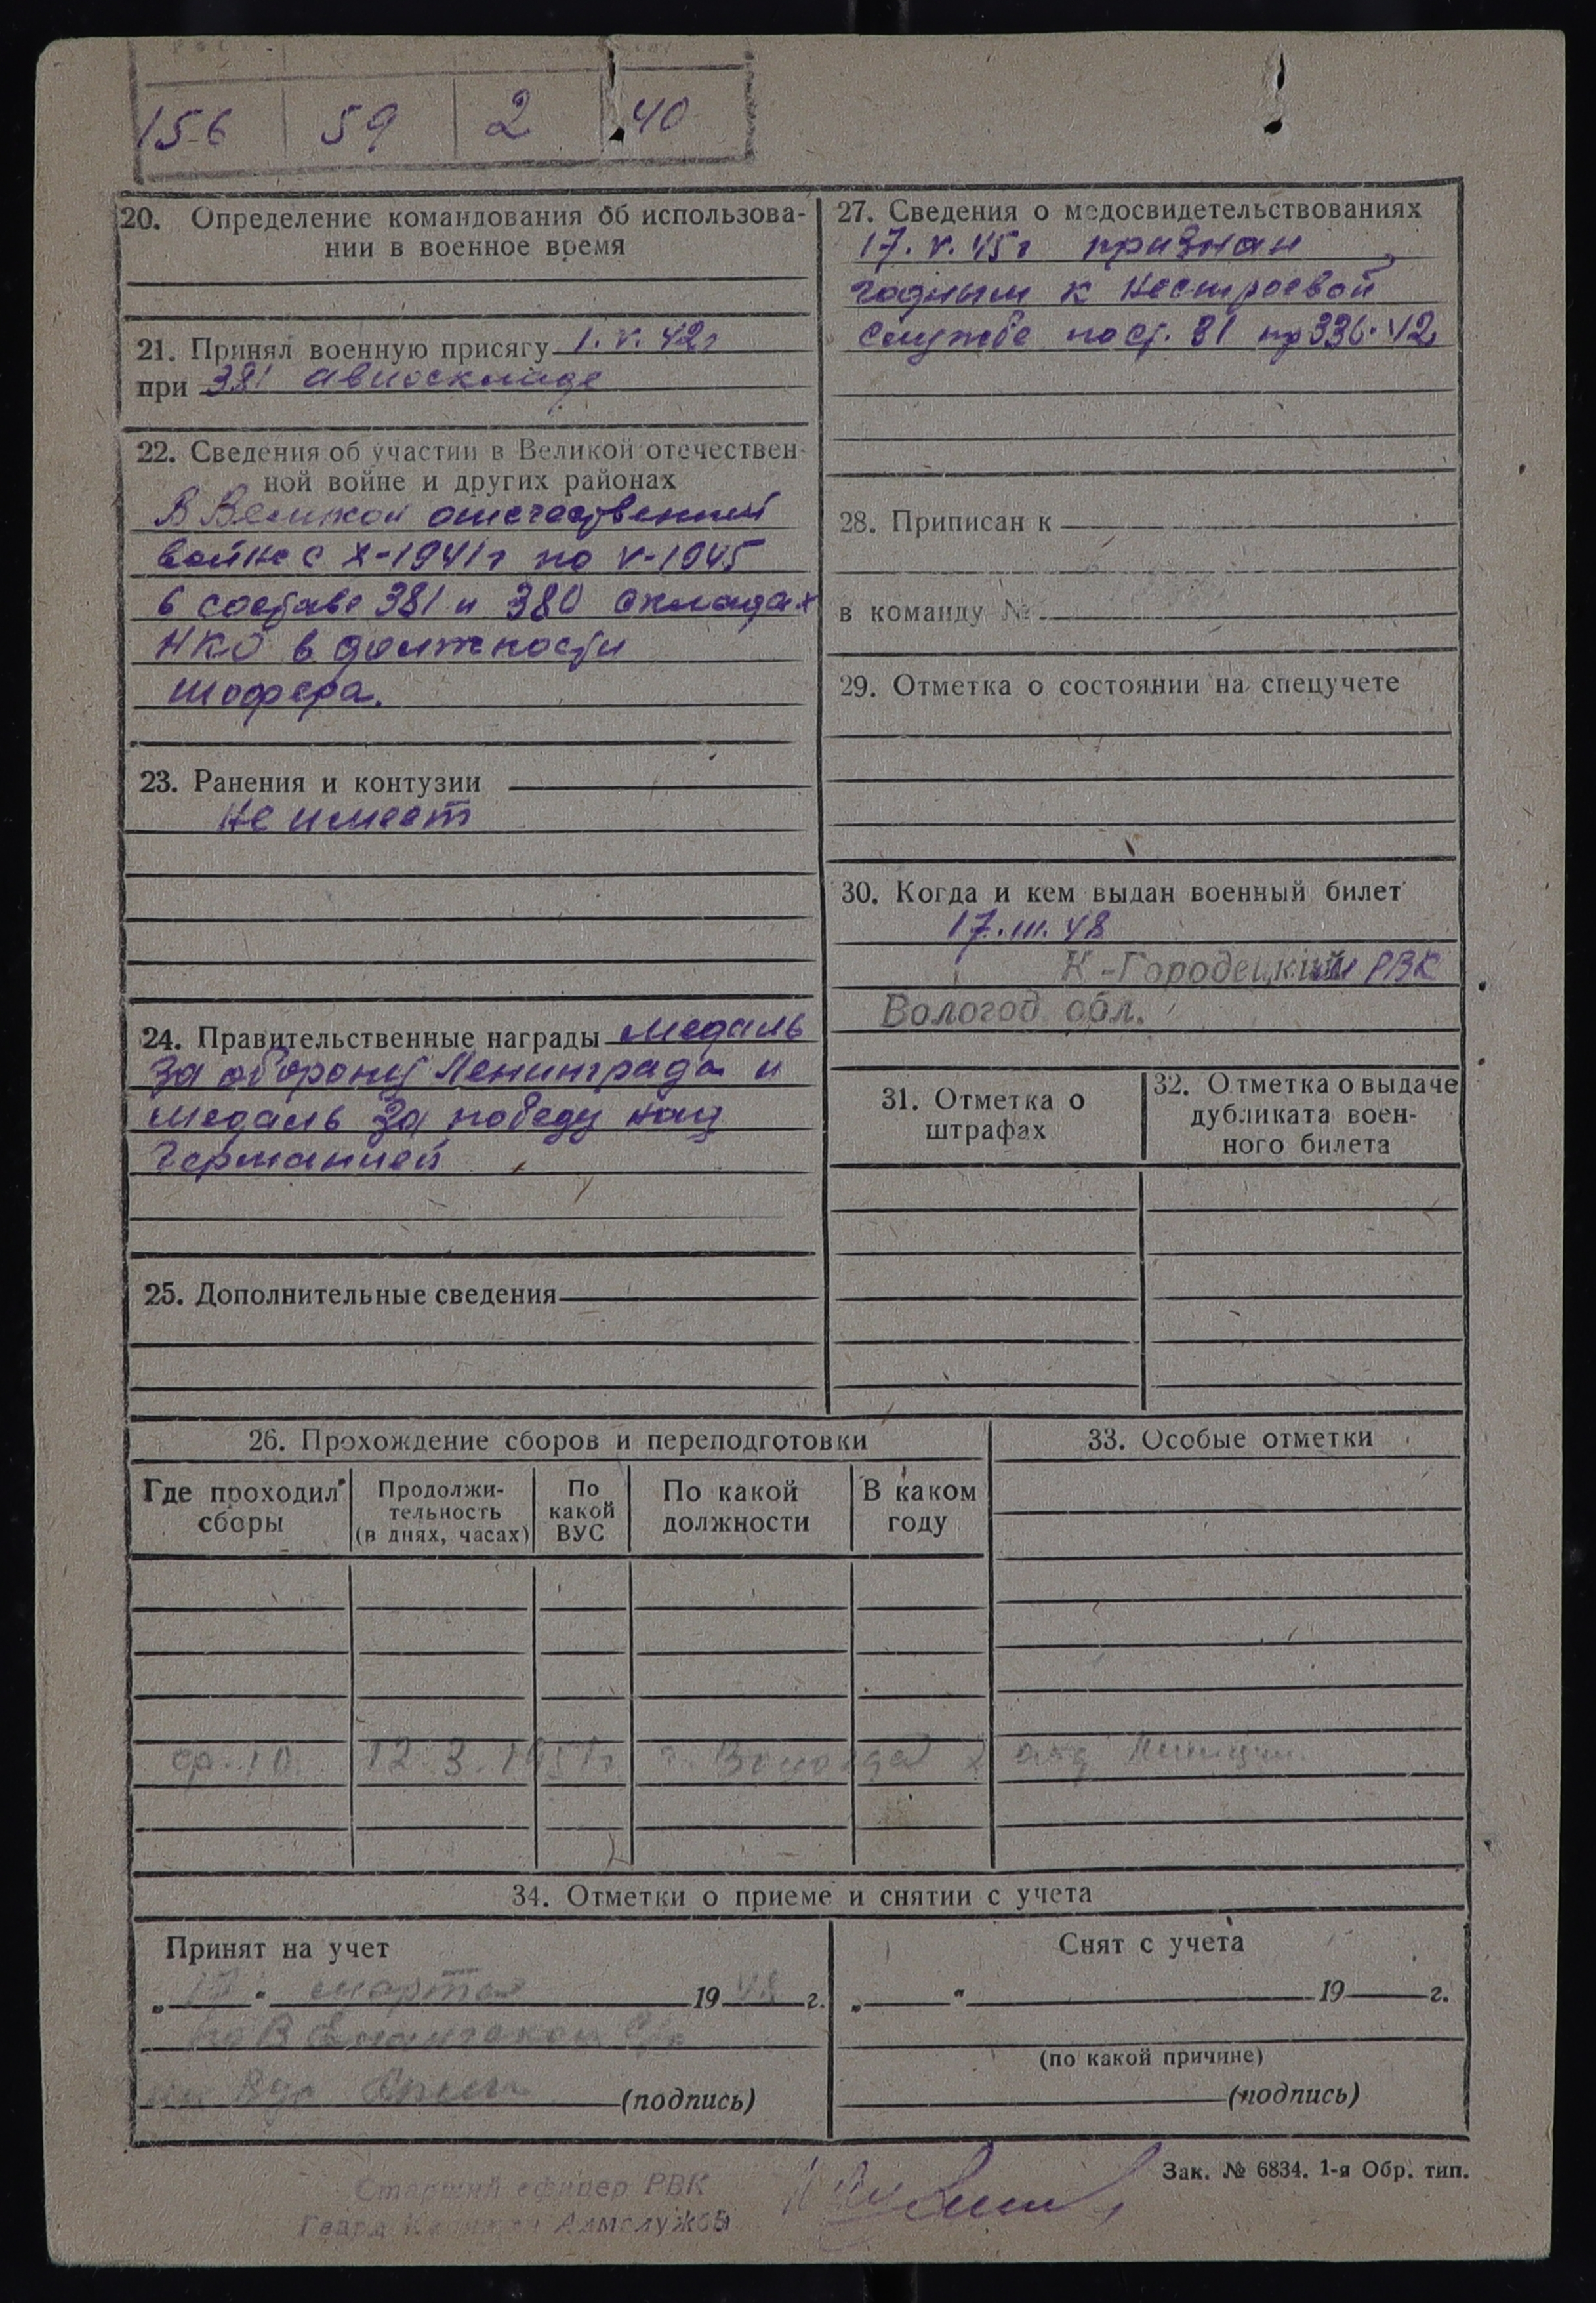 156 59 2 40
20. Определение командования об использова-
нии в военное время
21. Принял военную присягу 1.V.42г
при 381 авиоскладе
22. Сведения об участии в Великой отечествен-
ной войне и других районах
В Великой отечественной
войне с X-1941г по V-1945
в составе 381 и 380 складах
НКО в должности
шофера.
23. Ранения и контузии
не имеет
24. Правительственные награды медаль
За оборону Ленинграда и
медаль За победу над
Германией
25. Дополнительные сведения
27. Сведения о медосвидетельствованиях
17.V.45г признан
годным к нестроевой
службе по ст. 31 пр 336.42
28. Приписан к
в команду №
29. Отметка о состоянии на спецучете
30. Когда и кем выдан военный билет
17.III.48
К-Городецким РВК
Вологод обл.
31. Отметка о
штрафах
32. Отметка о выдаче
дубликата воен-
ного билета
26. Прохождение сборов и переподготовки
Где проходил
сборы
Продолжи-
тельность
(в днях, часах)
По
какой
ВУС
По какой
должности
В каком
году
ф. 10. 12.3.1951г г. Вологда
33. Особые отметки
34. Отметки о приеме и снятии с учета
Принят на учет
„17" марта 1948 г.
(подпись)
Снят с учета
„ " 19 г.
(по какой причине)
(подпись)
Зак. № 6834. 1-я Обр. тип.
Старший офицер РВК
Гвард Капитан Адмслужбы